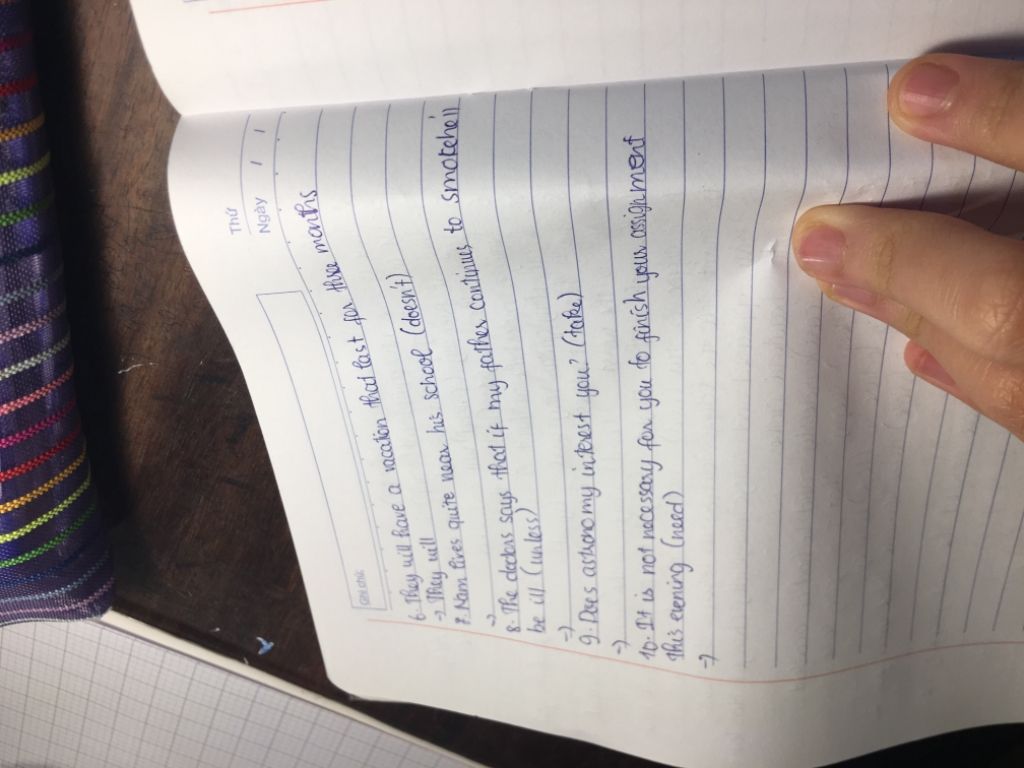 Thứ
Ngày / /
Ghi chú:
6. They will have a vacation that last for three months
-> They will
7. Nam lives quite near his school (doesn't)
->
8. The doctors says that if my father continues to smoke he'll
be ill (unless)
->
9. Does astronomy interest you? (take)
->
10. It is not necessary for you to finish your assignment
this evening (need)
->